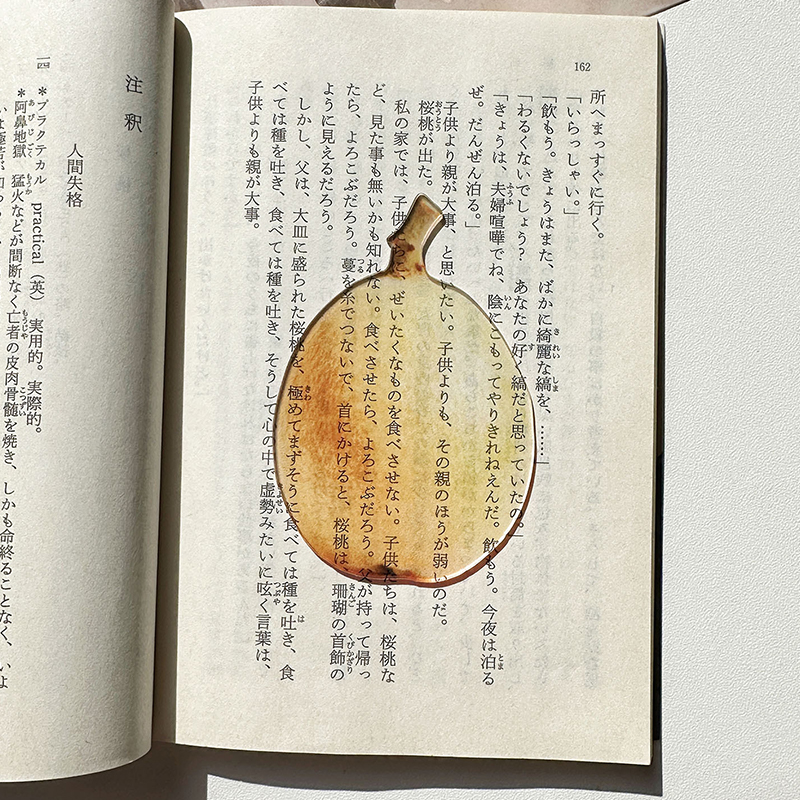 162
所へまっすぐに行く。
「いらっしゃい。」
「飲もう。きょうはまた、ばかに綺麗な縞を、……」
「わるくないでしょう? あなたの好く縞だと思っていたの。」
「きょうは、夫婦喧嘩でね、陰にこもってやりきれねえんだ。飲もう。今夜は泊る
ぜ。だんぜん泊る。」
子供より親が大事、と思いたい。子供よりも、その親のほうが弱いのだ。
桜桃が出た。
私の家では、子供たちに、ぜいたくなものを食べさせない。子供たちは、桜桃な
ど、見た事も無いかも知れない。食べさせたら、よろこぶだろう。父が持って帰っ
たら、よろこぶだろう。蔓を糸でつないで、首にかけると、桜桃は、珊瑚の首飾の
ように見えるだろう。
しかし、父は、大皿に盛られた桜桃を、極めてまずそうに食べては種を吐き、食
べては種を吐き、食べては種を吐き、そうして心の中で虚勢みたいに呟く言葉は、
子供よりも親が大事。
注釈
人間失格
一四 ＊プラクテカル practical（英） 実用的。実際的。
＊阿鼻地獄 猛火などが間断なく亡者の皮肉骨髄を焼き、しかも命終ることなく、いよ